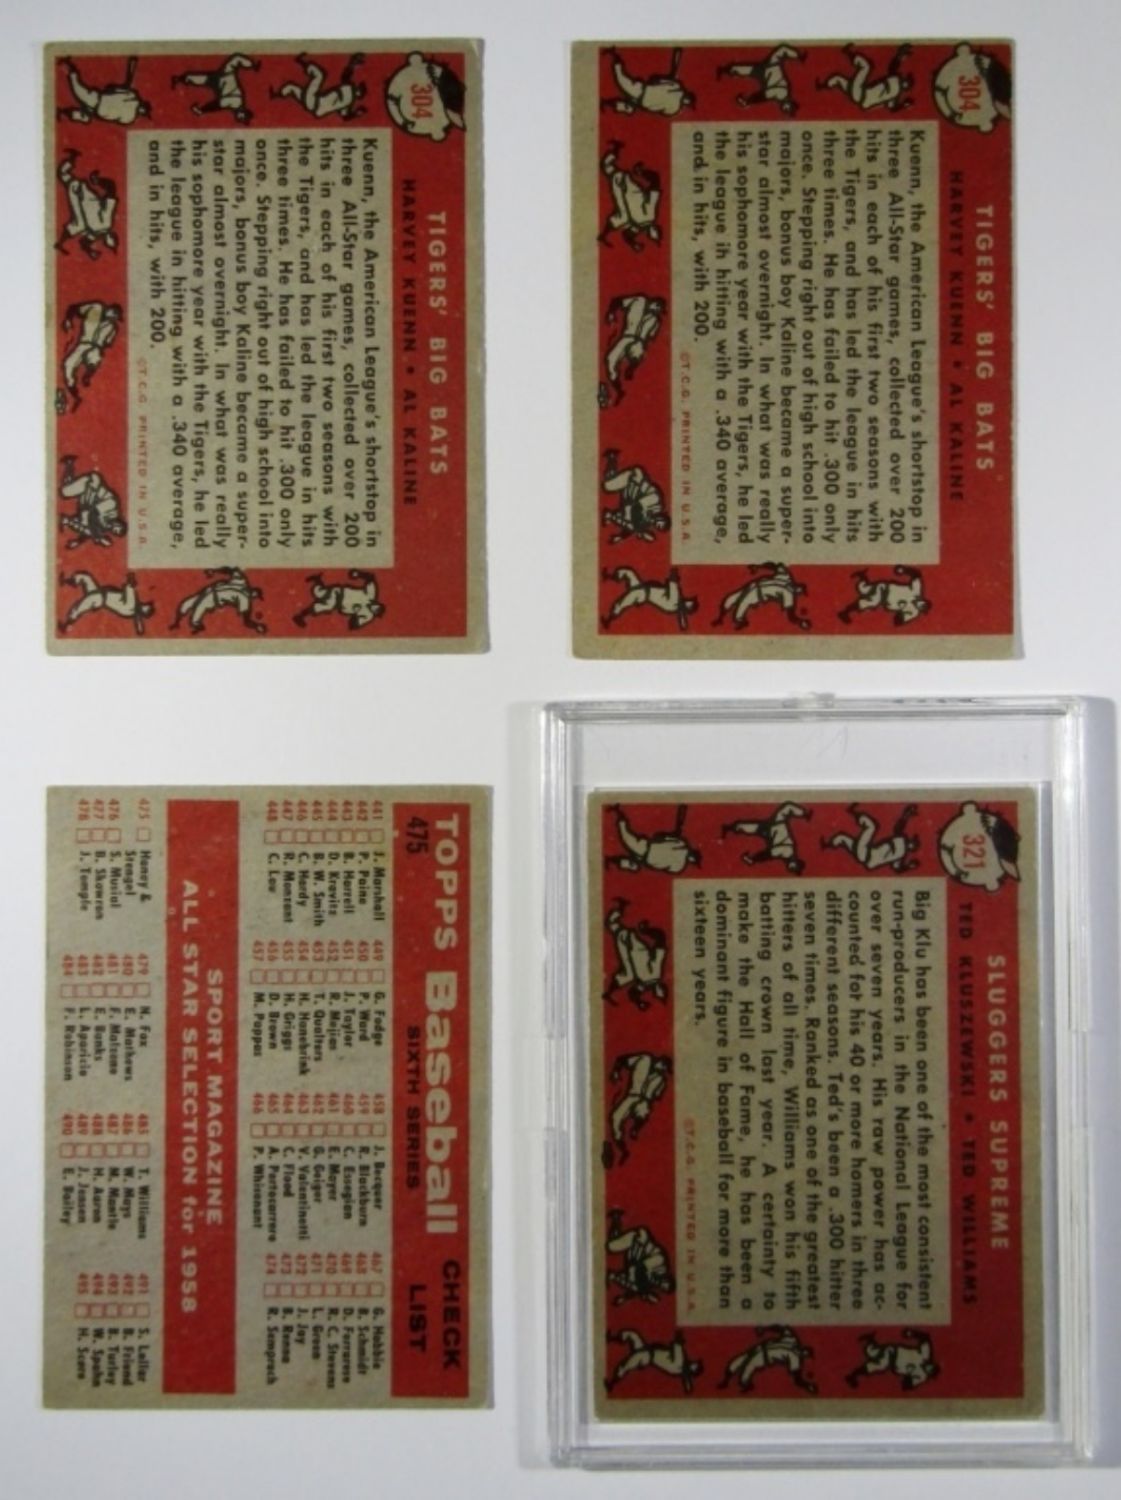 304
TIGERS' BIG BATS
HARVEY KUENN • AL KALINE
Kuenn, the American League's shortstop in
three All-Star games, collected over 200
hits in each of his first two seasons with
the Tigers, and has led the league in hits
three times. He has failed to hit .300 only
once. Stepping right out of high school into
majors, bonus boy Kaline became a super-
star almost overnight. In what was really
his sophomore year with the Tigers, he led
the league in hitting with a .340 average,
and in hits, with 200.
©T.C.G. PRINTED IN U.S.A.
304
TIGERS' BIG BATS
HARVEY KUENN • AL KALINE
Kuenn, the American League's shortstop in
three All-Star games, collected over 200
hits in each of his first two seasons with
the Tigers, and has led the league in hits
three times. He has failed to hit .300 only
once. Stepping right out of high school into
majors, bonus boy Kaline became a super-
star almost overnight. In what was really
his sophomore year with the Tigers, he led
the league in hitting with a .340 average,
and in hits, with 200.
©T.C.G. PRINTED IN U.S.A.
TOPPS Baseball CHECK
475 SIXTH SERIES LIST
441 J. Marshall 449 G. Fodge 458 J. Becquer 467 G. Hobbie
442 P. Paine 450 P. Ward 459 R. Blackburn 468 B. Schmidt
443 B. Harrell 451 J. Taylor 460 C. Essegian 469 D. Ferrarese
444 D. Kravitz 452 R. Mejias 461 E. Mayer 470 R. C. Stevens
445 B. W. Smith 453 T. Qualters 462 G. Geiger 471 L. Green
446 C. Hardy 454 H. Hanebrink 463 V. Valentinetti 472 J. Jay
447 R. Monzant 455 H. Griggs 464 C. Flood 473 B. Renna
448 C. Lau 456 D. Brown 465 A. Portocarrero 474 R. Semproch
457 M. Pappas 466 P. Whisenant
SPORT MAGAZINE
ALL STAR SELECTION for 1958
475 Haney & 479 N. Fox 485 T. Williams 491 S. Lollar
Stengel 480 E. Mathews 486 W. Mays 492 B. Friend
476 S. Musial 481 F. Malzone 487 M. Mantle 493 B. Turley
477 B. Skowron 482 E. Banks 488 H. Aaron 494 W. Spahn
478 J. Temple 483 L. Aparicio 489 J. Jensen 495 H. Score
484 F. Robinson 490 E. Bailey
321
SLUGGERS SUPREME
TED KLUSZEWSKI • TED WILLIAMS
Big Klu has been one of the most consistent
run-producers in the National League for
over seven years. His raw power has ac-
counted for his 40 or more homers in three
different seasons. Ted's been a .300 hitter
seven times. Ranked as one of the greatest
hitters of all time, Williams won his fifth
batting crown last year. A certainty to
make the Hall of Fame, he has been a
dominant figure in baseball for more than
sixteen years.
©T.C.G. PRINTED IN U.S.A.